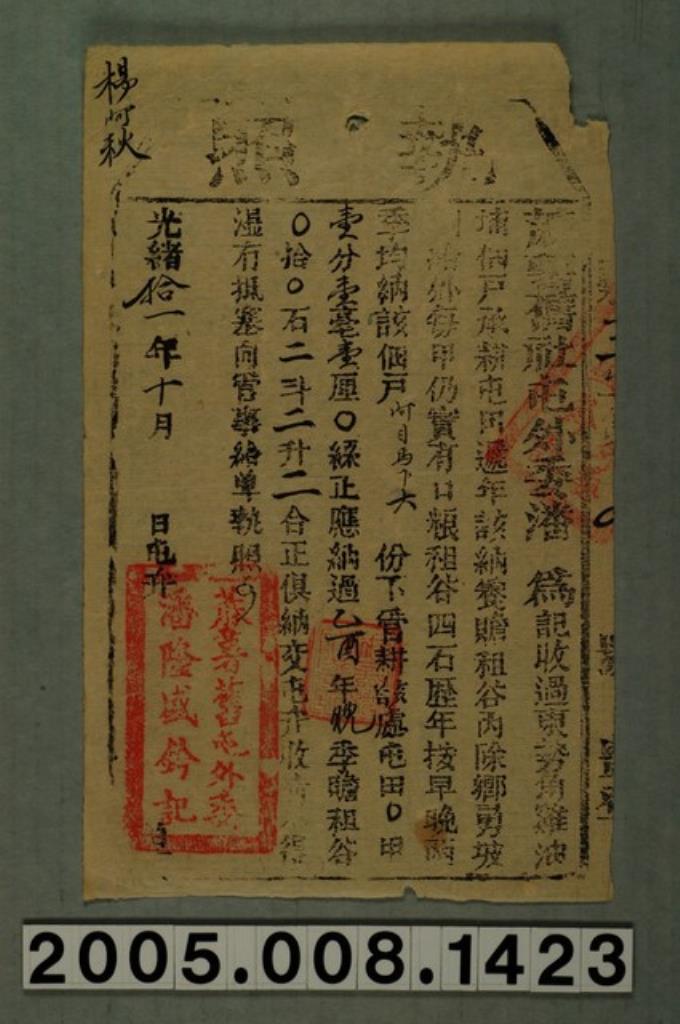 楊阿秋
執照
舊社屯外委潘 為記收過東勢角雞油
埔佃戶承耕屯田遞年該納養贍租谷內除鄉勇坡
外每甲仍實有口粮租谷四石歷年按早晚兩
季均納該佃戶阿 六 份下管耕該處屯田〇甲
壹分壹毫壹厘〇絲正應納過乙酉年晚季贍租谷
〇拾〇石二斗二升二合正俱納交屯弁收 得
濕冇抵塞向管事給單執照
光緒拾一年十月 日屯弁
舊屯外委
潘隆盛鈐記
2005.008.1423